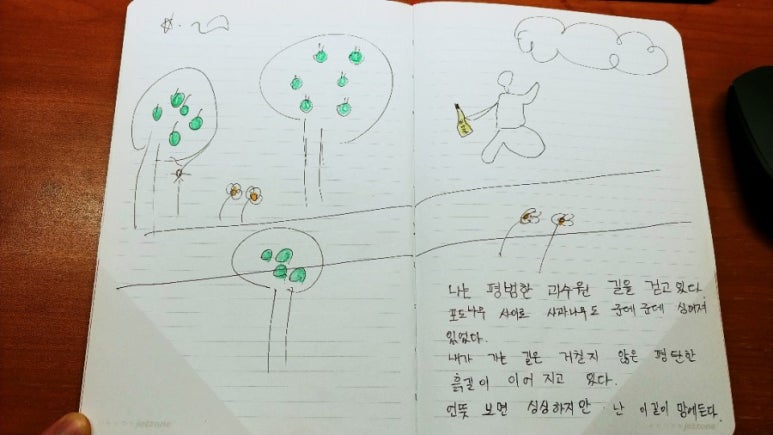 나는 평범한 과수원 길을 걷고 있다.
포도나무 사이로 사과나무도 군데군데 심어져
있었다.
내가 가는 길은 거친지 않은 평탄한
흙길이 이어 지고 있다.
언뜻 보면 심심하지만 난 이길이 맘에든다.
jetzone
jetzone